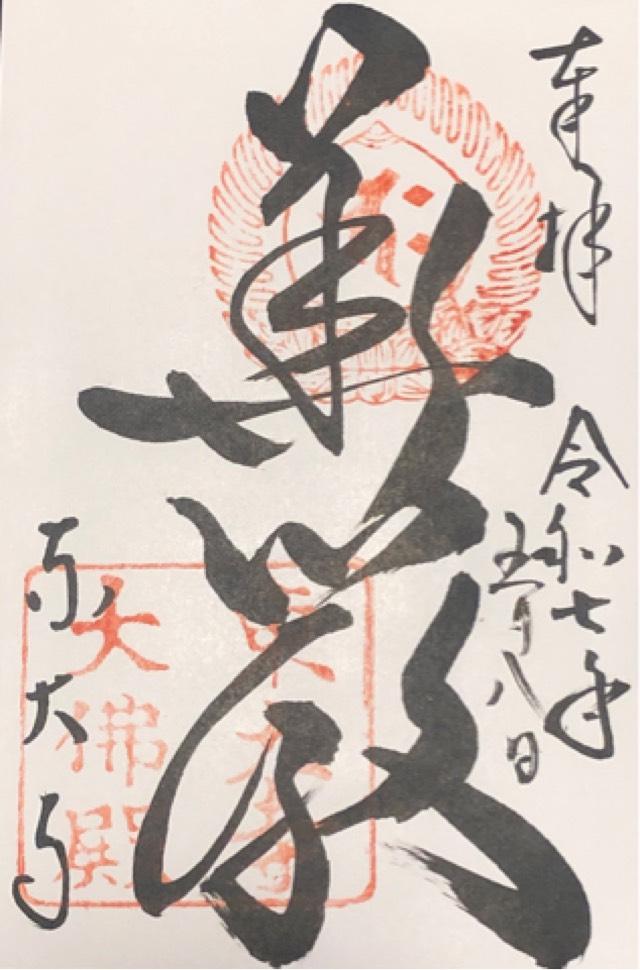 奉拝
令和七年
五月八日
華嚴
東大寺
東大寺
大佛殿